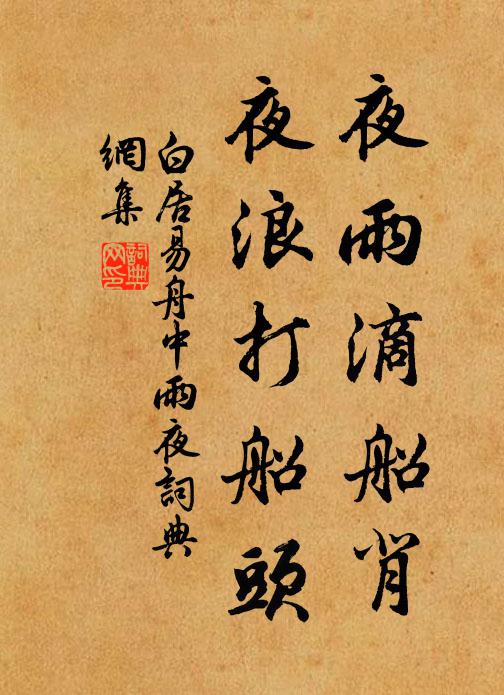 夜雨滴船背
夜浪打船頭
白居易舟中雨夜詞典
網集
詞典
网印